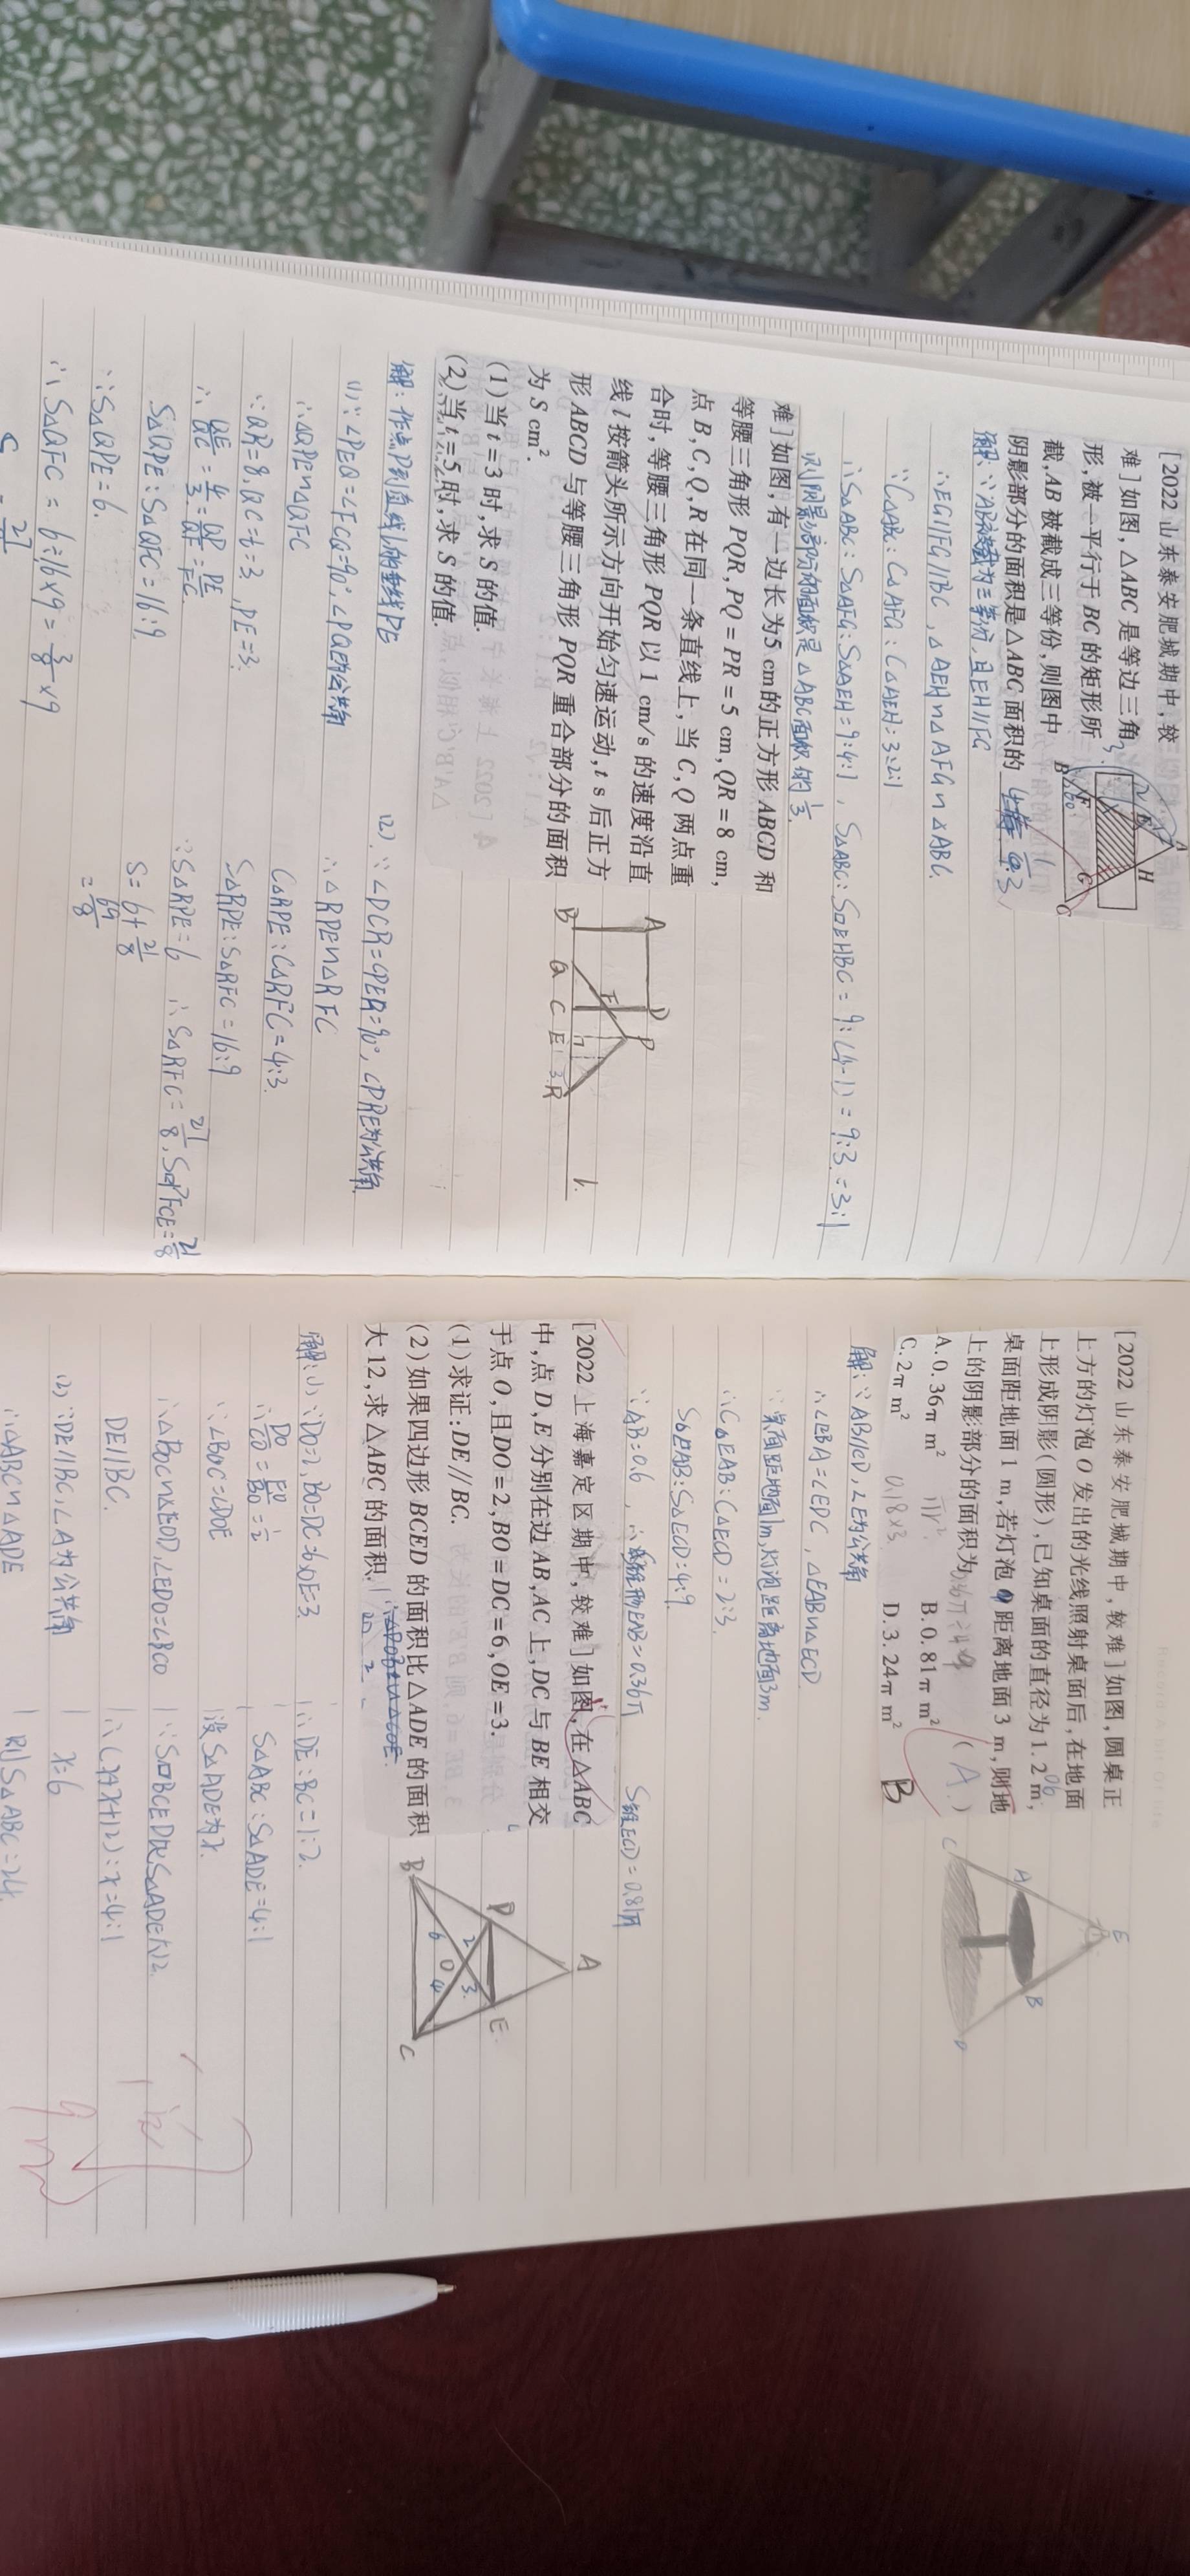 [2022 山东泰安肥城期中,较
难]如图,△ABC 是等边三角
形,被一平行于 BC 的矩形所
截,AB 被截成三等份,则图中
阴影部分的面积是△ABC 面积的
解:∵AB被截为三等份,且EH∥FG
∴EG∥FG∥BC,△AEH∽△AFG∽△ABC.
∵C△ABC:C△AFG:C△AEH=3:2:1
∴S△ABC:S△AFG:S△AEH=9:4:1,S△ABC:S▱EHBC=9:(4-1)=9:3=3:1
则阴影部分的面积是△ABC面积的1/3.
A
E
H
F
G
B
C
难]如图,有一边长为5 cm的正方形 ABCD 和
等腰三角形 PQR,PQ=PR=5 cm,QR=8 cm,
点 B,C,Q,R 在同一条直线上,当 C,Q 两点重
合时,等腰三角形 PQR 以 1 cm/s 的速度沿直
线 l 按箭头所示方向开始匀速运动,t s 后正方
形 ABCD 与等腰三角形 PQR 重合部分的面积
为 S cm².
(1)当 t=3 时,求 S 的值.
(2)当 t=5 时,求 S 的值.
A
D
P
F
B
Q
C
E
3
R
l.
解:作点P到直线l的垂线PE
(1)∵∠PEQ=∠FCQ=90°,∠PQE为公共角
∴△QPE∽△QFC
∵QR=8,QC=t=3,PE=3.
∴QE/QC=4/3=QP/QF=PE/FC.
S△QPE:S△QFC=16:9.
∵S△QPE=6.
∴S△QFC=6÷16×9=3/8×9
(2)∵∠DCR=∠PER=90°,∠PRE为公共角.
∴△RPE∽△RFC
C△RPE:C△RFC=4:3.
S△RPE:S△RFC=16:9
∵S△RPE=6 ∴S△RFC=27/8,S▱PFCE=21/8
S=6+21/8
=69/8
[2022 山东泰安肥城期中,较难]如图,圆桌正
上方的灯泡 O 发出的光线照射桌面后,在地面
上形成阴影(圆形),已知桌面的直径为 1.2 m,
桌面距地面 1 m,若灯泡 O 距离地面 3 m,则地
上的阴影部分的面积为 (A)
A. 0.36π m² B. 0.81π m²
C. 2π m² D. 3.24π m²
B
πr².
0.18×3
0.6
E
A
B
C
D
解:∵AB∥CD,∠E为公共角
∴∠EBA=∠EDC,△EAB∽△ECD
∵桌面距地面1m,灯泡距离地面3m.
∴C△EAB:C△ECD=2:3.
S△EAB:S△ECD=4:9.
∵AB=0.6,∴S锥形EAB=0.36π S锥ECD=0.81π
[2022 上海嘉定区期中,较难]如图,在△ABC
中,点 D,E 分别在边 AB,AC 上,DC 与 BE 相交
于点 O,且DO=2,BO=DC=6,OE=3.
(1)求证:DE∥BC.
(2)如果四边形 BCED 的面积比△ADE 的面积
大 12,求△ABC 的面积.
A
D
E
2
3
O
6
4
B
C
解:(1)∵DO=2,BO=DC=6,OE=3.
∴DO/CO=EO/BO=1/2
∵∠BOC=∠DOE
∴△BOC∽△EOD,∠EDO=∠BCO
DE∥BC.
(2)∵DE∥BC,∠A为公共角
∴△ABC∽△ADE
∴DE:BC=1:2.
S△ABC:S△ADE=4:1
设S△ADE为x.
∵S▱BCED比S△ADE大12.
∴(x+x+12):x=4:1
x=6
则S△ABC=24.